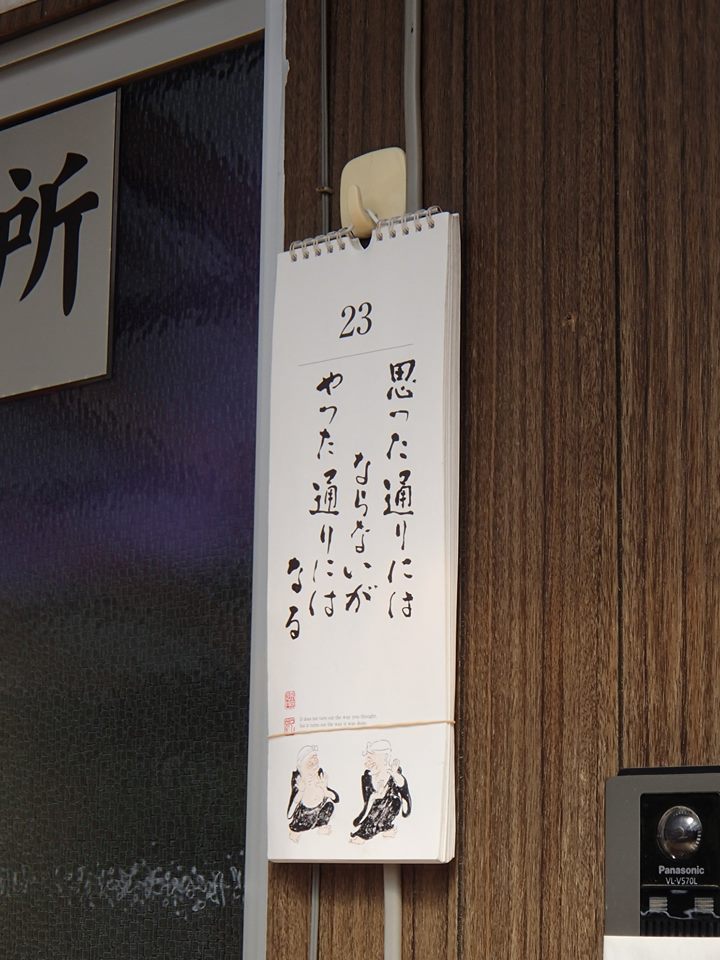 所
23
思った通りには
ならないが
やった通りには
なる
it does not turn out the way you thought,
but it turns out the way it was done.
Panasonic
VL-V570L